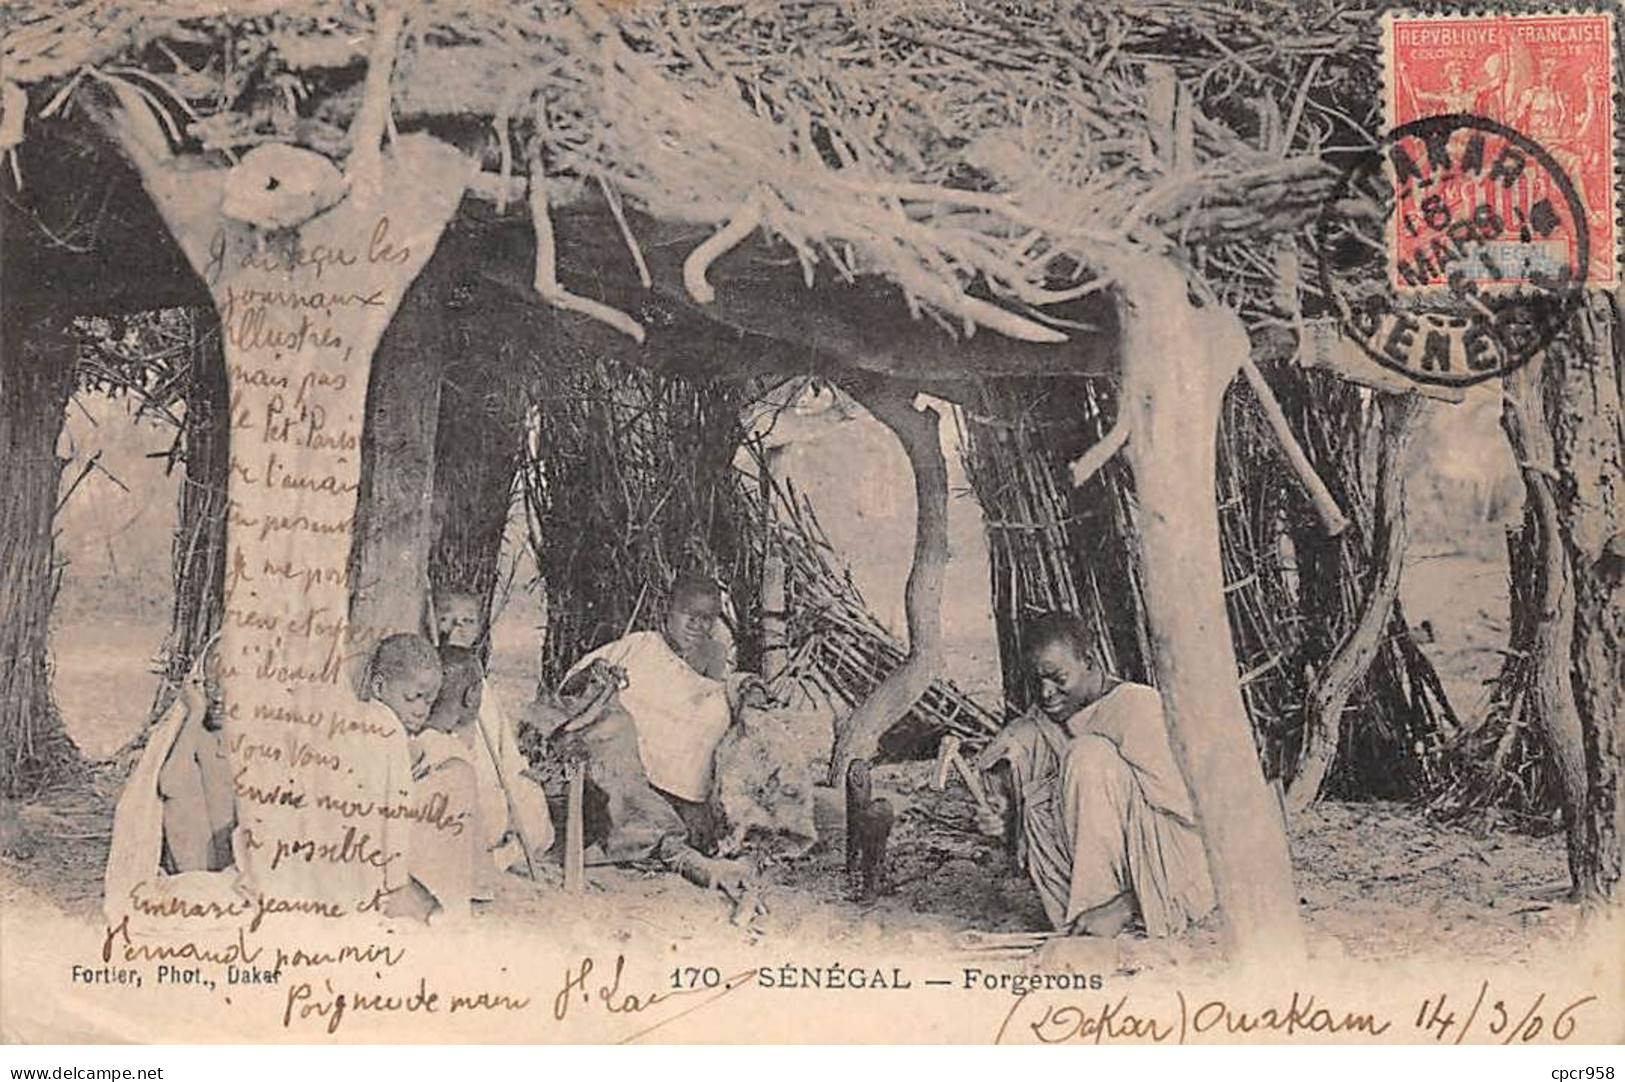 REPVBLIQVE FRANÇAISE
COLONIES POSTES
10
DAKAR
18
MARS
SENEG
J'ai reçu les
journaux
illustrés,
mais pas
le Pet. Paris
Je me porte
bien et espère
qu'il
de même pour
Vous
Envoie moi nouvelles
si possible
Embrasse Jeanne et
Fernand pour moi
Poignée de main
Fortier, Phot., Dakar
170. SÉNÉGAL — Forgerons
(Dakar) Ouakam 14/3/06
delcampe.net
cpcr958